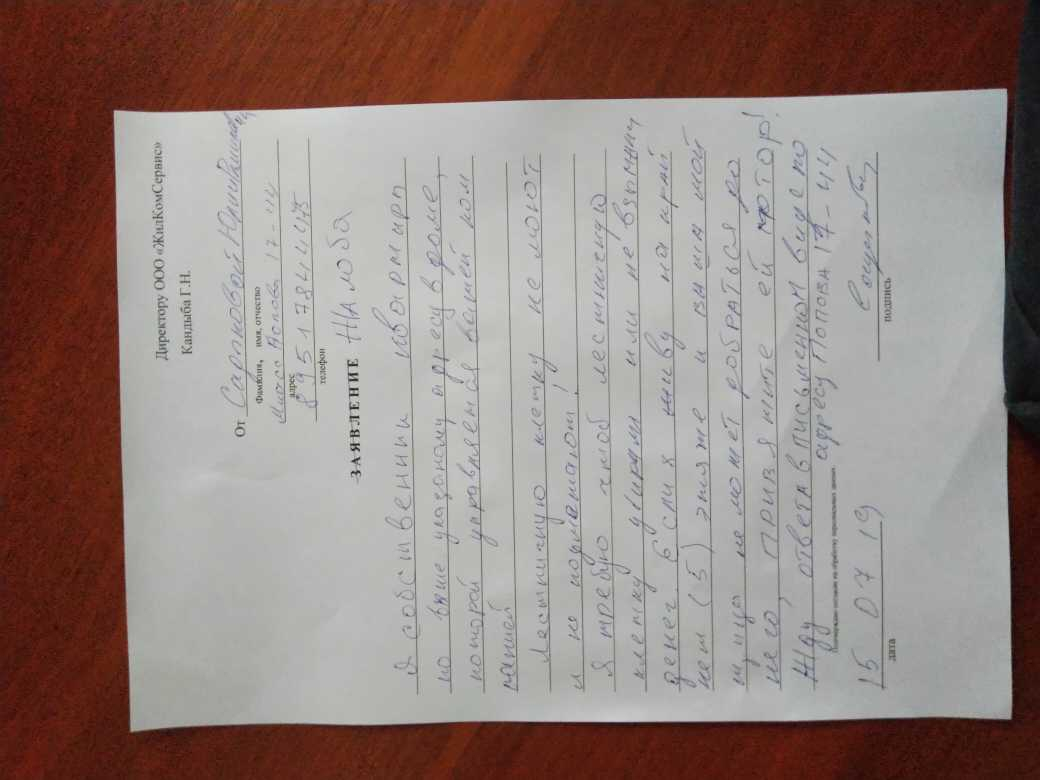 Директору ООО «ЖилКомСервис»
Кандыба Г.Н.
От Садоковой Юлии
Фамилия, имя, отчество
Миасс Попова 17-44
адрес
8 951 784 44 45
телефон
ЗАЯВЛЕНИЕ Жалоба
Я собственник квартиры
по выше указаному адресу в доме,
которой управляемая вашей ком
панией
Лестничную клетку не моют
и не подметают!
Я требую чтоб лестничную
клетку убирали или не взымали
денег Если я живу на край
нем (5) этаже и ваша мой
щица не может добраться до
него, привяжите ей мотор!
Жду ответа в письменном виде по
адресу Попова 17-44
Подтверждаю согласие на обработку персональных данных
15 07 19
дата
подпись